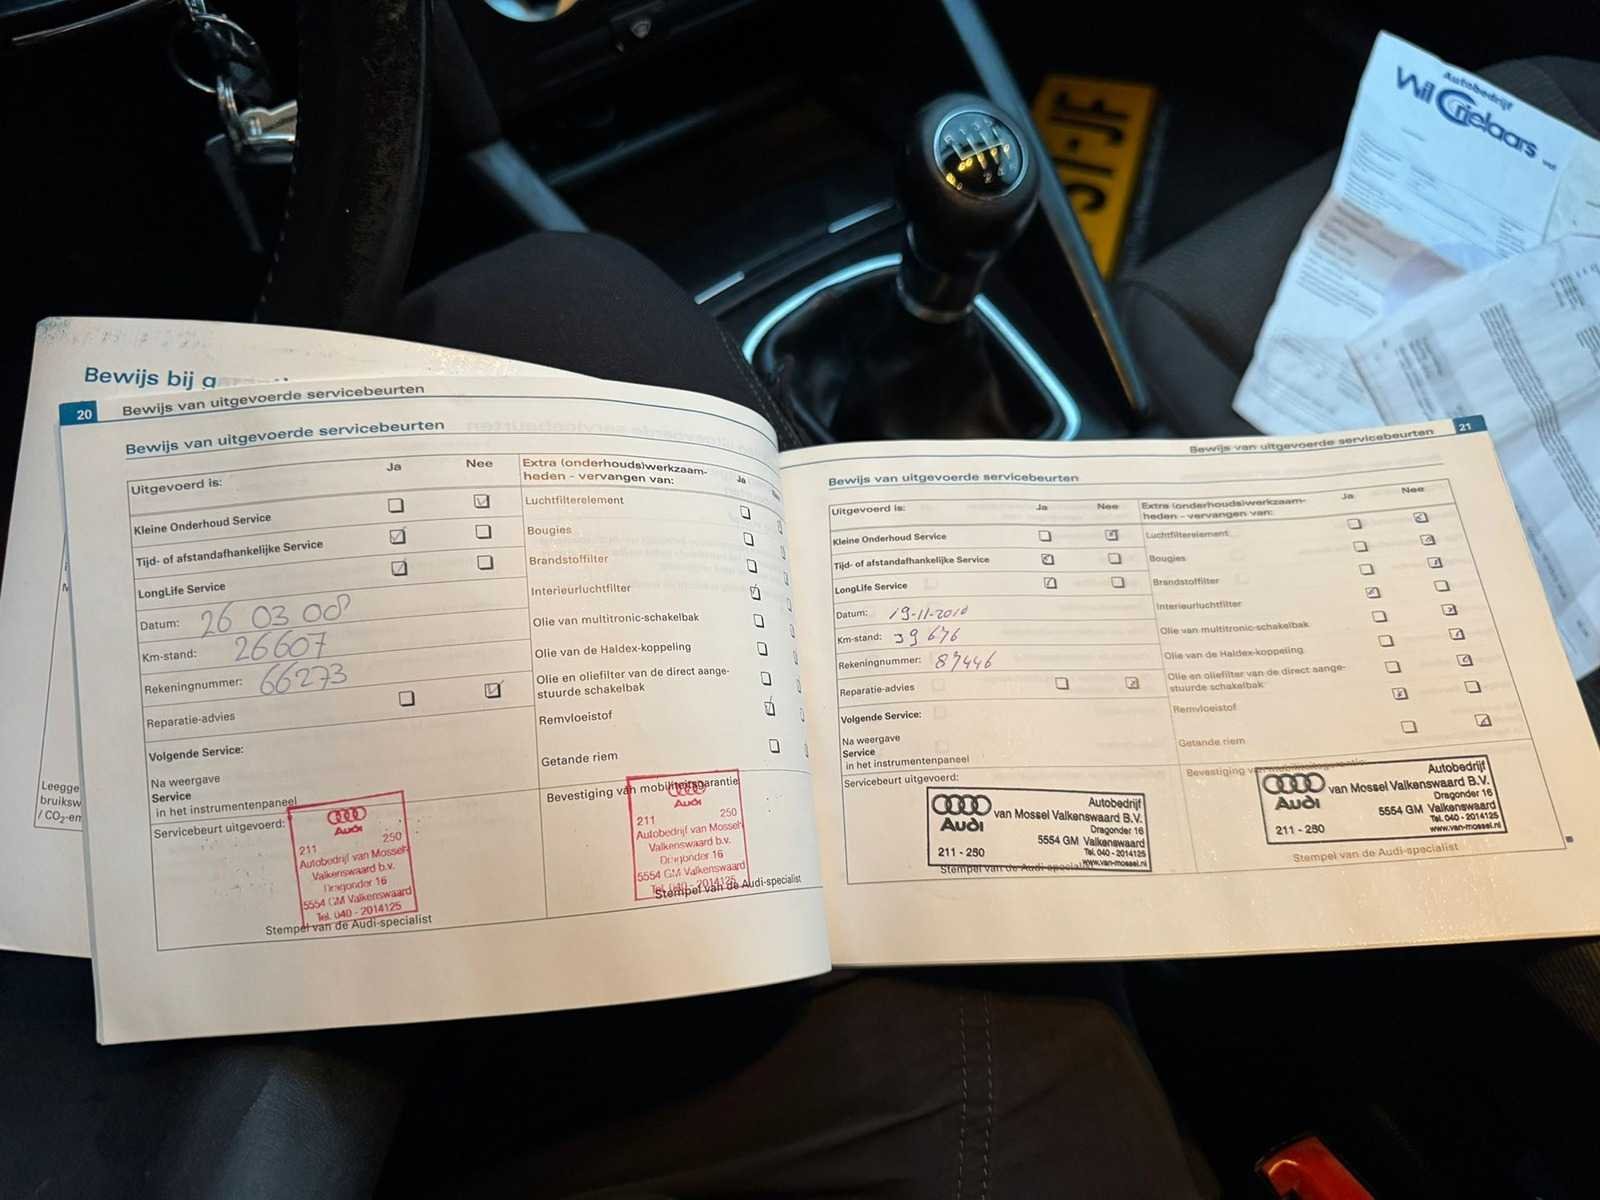 Autobedrijf
Wil Crielaars vof
ST-JF
Bewijs bij
20
Bewijs van uitgevoerde servicebeurten
Bewijs van uitgevoerde servicebeurten
Uitgevoerd is:
Ja
Nee
Kleine Onderhoud Service
Tijd- of afstandafhankelijke Service
LongLife Service
Datum: 26 03 08
Km-stand: 26607
Rekeningnummer: 66273
Reparatie-advies
Volgende Service:
Na weergave
Service
in het instrumentenpaneel
Servicebeurt uitgevoerd:
Audi
211 250
Autobedrijf van Mossel
Valkenswaard b.v.
Dragonder 16
5554 GM Valkenswaard
Tel. 040 - 2014125
Stempel van de Audi-specialist
Extra (onderhouds)werkzaam-
heden - vervangen van:
Ja
Luchtfilterelement
Bougies
Brandstoffilter
Interieurluchtfilter
Olie van multitronic-schakelbak
Olie van de Haldex-koppeling
Olie en oliefilter van de direct aange-
stuurde schakelbak
Remvloeistof
Getande riem
Bevestiging van mobiliteitsgarantie
Audi
211 250
Autobedrijf van Mossel
Valkenswaard b.v.
Dragonder 16
5554 GM Valkenswaard
Tel. 040 - 2014125
Stempel van de Audi-specialist
Leegge
bruiksw
/ CO2-em
Bewijs van uitgevoerde servicebeurten
21
Bewijs van uitgevoerde servicebeurten
Uitgevoerd is:
Ja
Nee
Kleine Onderhoud Service
Tijd- of afstandafhankelijke Service
LongLife Service
Datum: 19-11-2010
Km-stand: 39676
Rekeningnummer: 87446
Reparatie-advies
Volgende Service:
Na weergave
Service
in het instrumentenpaneel
Servicebeurt uitgevoerd:
Autobedrijf
van Mossel Valkenswaard B.V.
Audi
Dragonder 16
5554 GM Valkenswaard
211 - 250
Tel. 040 - 2014125
www.van-mossel.nl
Stempel van de Audi-specialist
Extra (onderhouds)werkzaam-
heden - vervangen van:
Ja
Nee
Luchtfilterelement
Bougies
Brandstoffilter
Interieurluchtfilter
Olie van multitronic-schakelbak
Olie van de Haldex-koppeling
Olie en oliefilter van de direct aange-
stuurde schakelbak
Remvloeistof
Getande riem
Bevestiging van mobiliteitsgarantie:
Autobedrijf
van Mossel Valkenswaard B.V.
Audi
Dragonder 16
5554 GM Valkenswaard
211 - 250
Tel. 040 - 2014125
www.van-mossel.nl
Stempel van de Audi-specialist